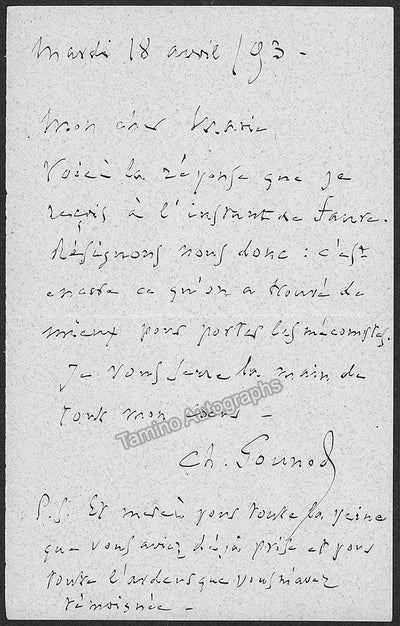 Mardi 18 avril /93 -
Mon cher Marie
Voici la réponse que je
reçois à l'instant de Faure.
Résignons nous donc : c'est
encore ce qu'on a trouvé de
mieux pour porter les mécomptes.
Je vous serre la main de
tout mon cœur -
Tamino Autographs
Ch. Gounod
P.S. Et merci pour toute la peine
que vous aviez déjà prise et pour
toute l'ardeur que vous m'avez
témoignée -